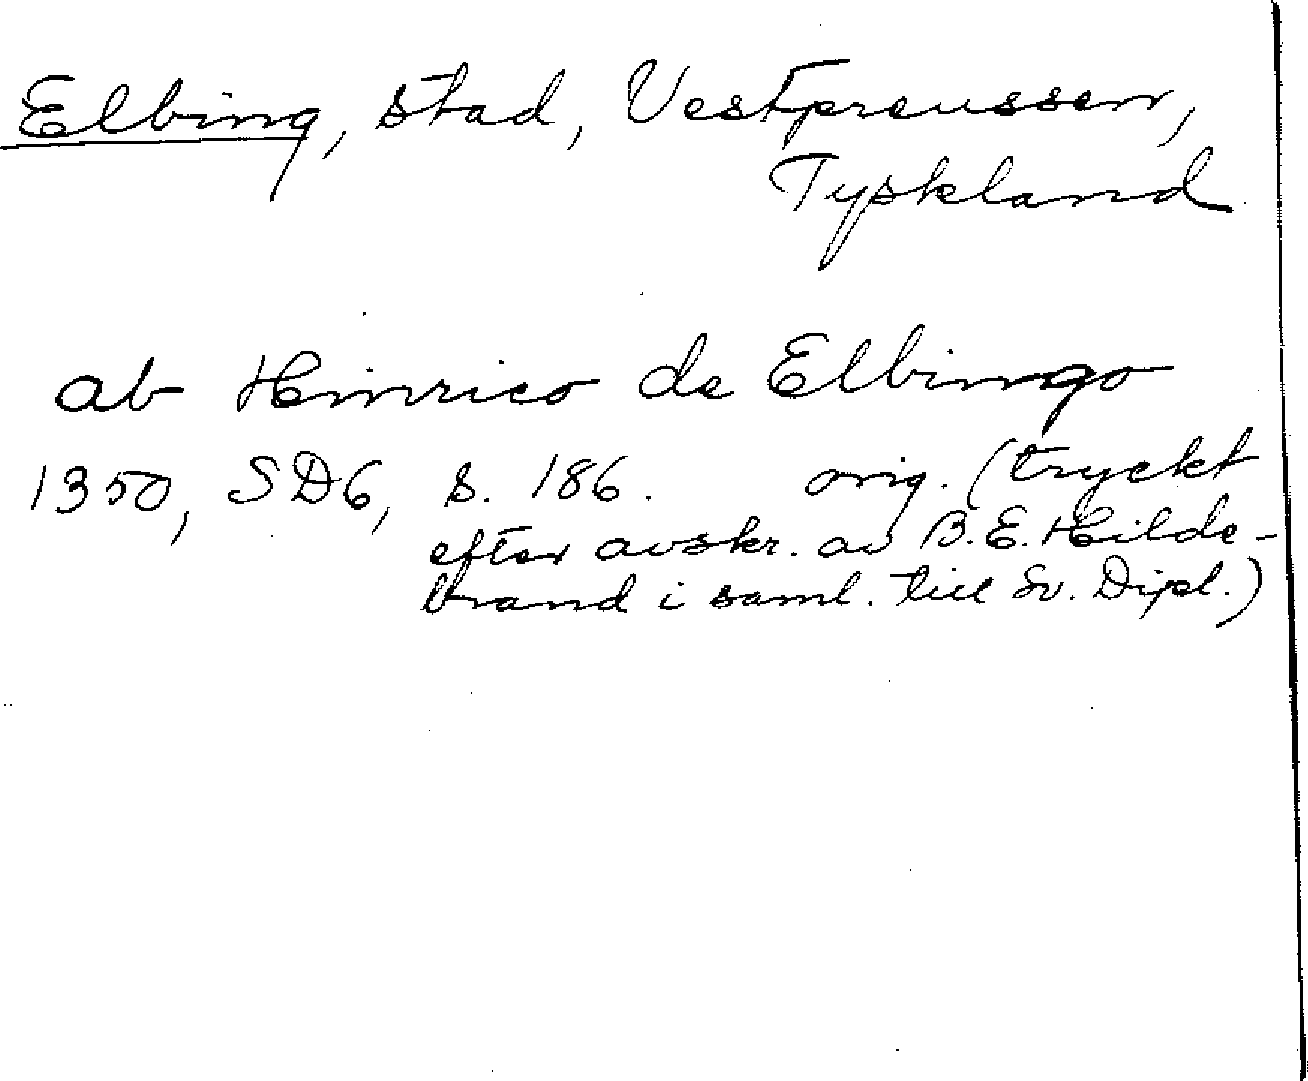 Elbing, stad, Vestpreussen,
Tyskland
ab Hinrico de Elbingo
1350, SD6, s. 186. orig. (tryckt
efter avskr. av B.E. Hilde-
brand i saml. till Sv. Dipl.)